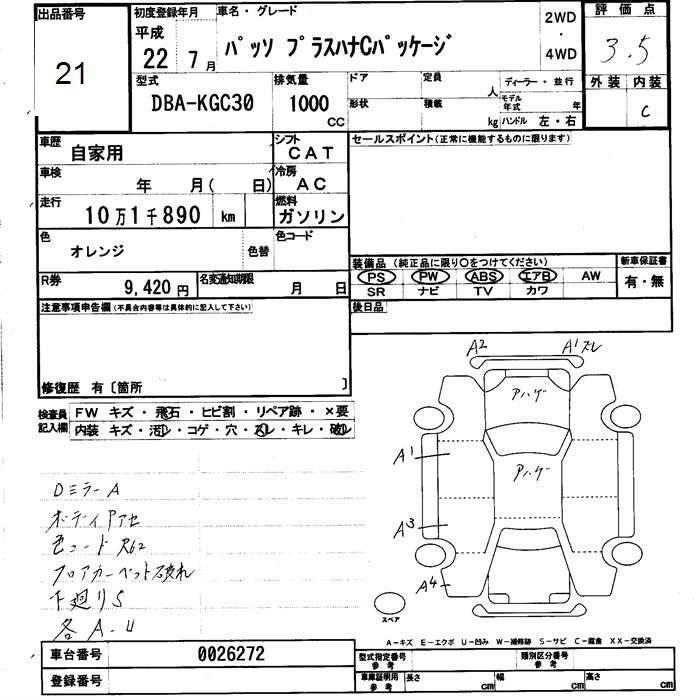 出品番号
21
初度登録年月
平成
22 7月
車名・グレード
パッソ プラスハナCパッケージ
2WD
・
4WD
評価点
3.5
外装 内装
C
型式
DBA-KGC30
排気量
1000
CC
ドア 定員 人
形状 積載 kg
ディーラー・並行
モデル年式 年
ハンドル 左・右
車歴 自家用
シフト CAT
車検 年 月( 日)
冷房 AC
走行 10万1千890 km
燃料 ガソリン
色 オレンジ 色替
色コード
R券 9,420円
名変通知期限 月 日
セールスポイント(正常に機能するものに限ります)
装備品 (純正品に限り○をつけてください)
PS PW ABS エアB AW
SR ナビ TV カワ
新車保証書
有・無
後日品
注意事項申告欄(不具合内容等は具体的に記入して下さい)
修復歴 有〔箇所 〕
検査員記入欄
FW キズ・飛石・ヒビ割・リペア跡・×要
内装 キズ・汚れ・コゲ・穴・スレ・キレ・破れ
Dミラー A
ボディアアセ
色コード R62
フロアカーペット破れ
下廻りS
各A.U
A2
A1 スレ
アハゲ
A1
アハゲ
A3
A4
スペア
A-キズ E-エクボ U-凹み W-補修跡 S-サビ C-腐食 XX-交換済
車台番号 0026272
登録番号
型式指定番号 参考
類別区分番号 参考
車庫証明用 参考
長さ cm 幅 cm 高さ cm